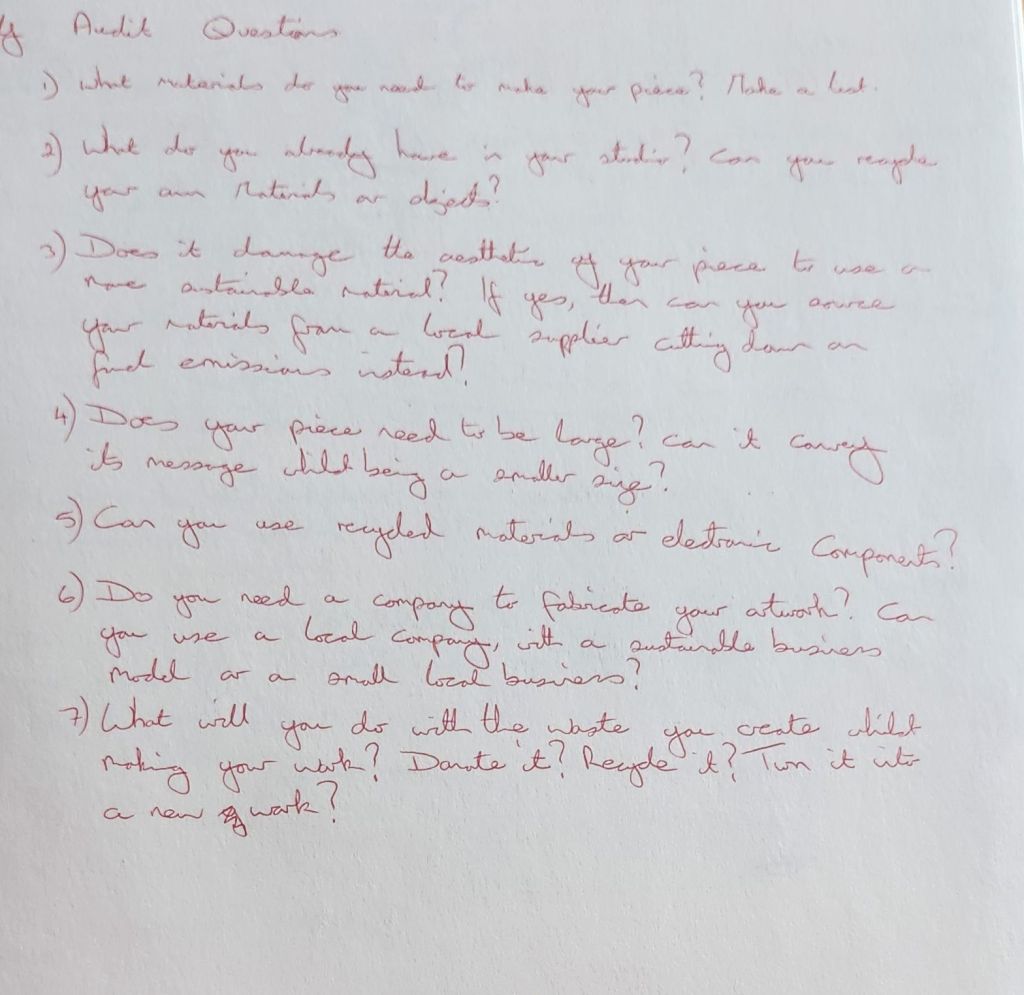 y Audit Questions
1) What materials do you need to make your piece? Make a list.
2) What do you already have in your studio? Can you recycle
your own Materials or objects?
3) Does it damage the aesthetic of your piece to use a
more sustainable material? If yes, then can you source
your materials from a local supplier cutting down on
fuel emissions instead?
4) Does your piece need to be large? Can it convey
its message whilst being a smaller size?
5) Can you use recycled materials or electronic Components?
6) Do you need a company to fabricate your artwork? Can
you use a local company, with a sustainable business
model or a small local business?
7) What will you do with the waste you create whilst
making your work? Donate it? Recycle it? Turn it into
a new work?